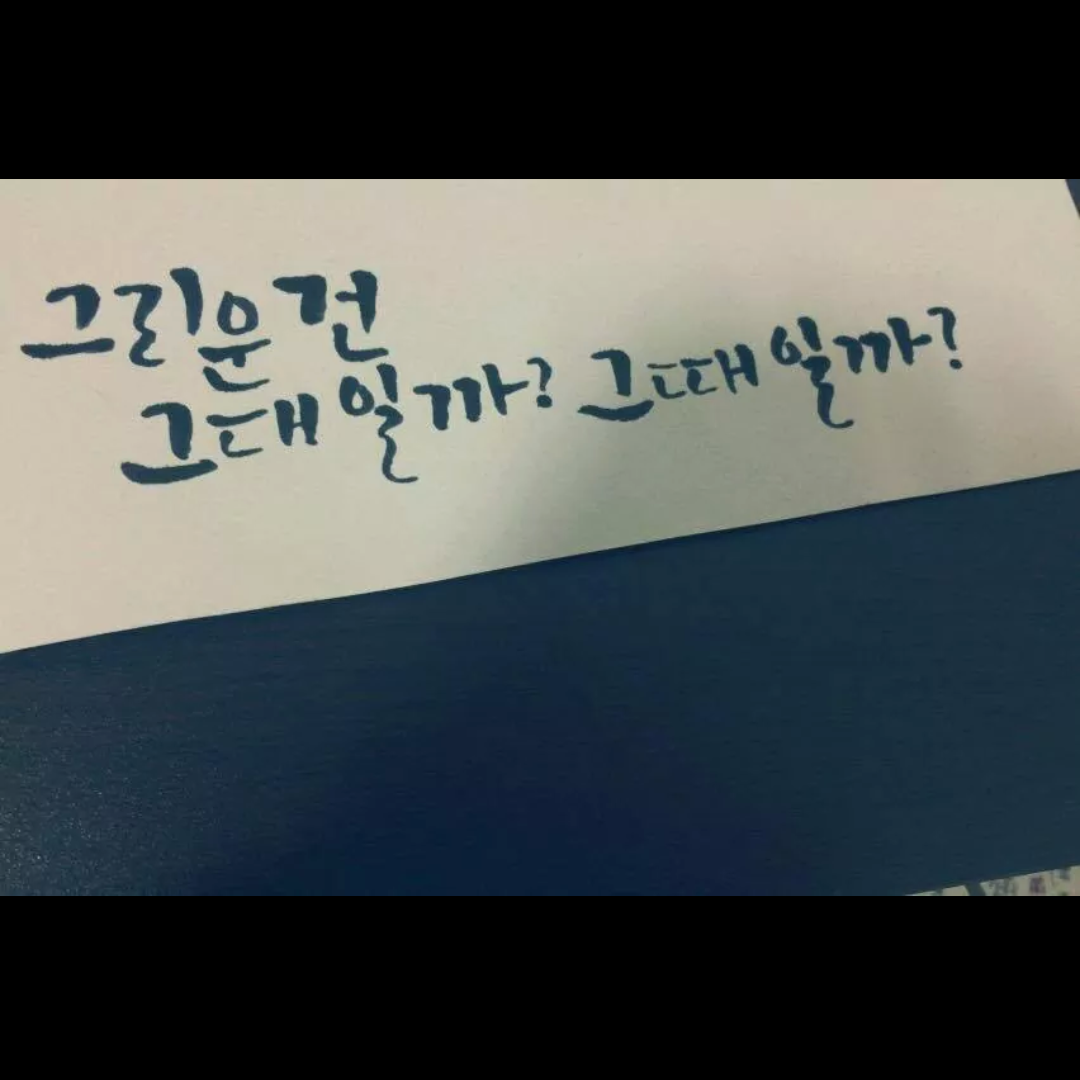 그리운건
그대일까? 그때일까?